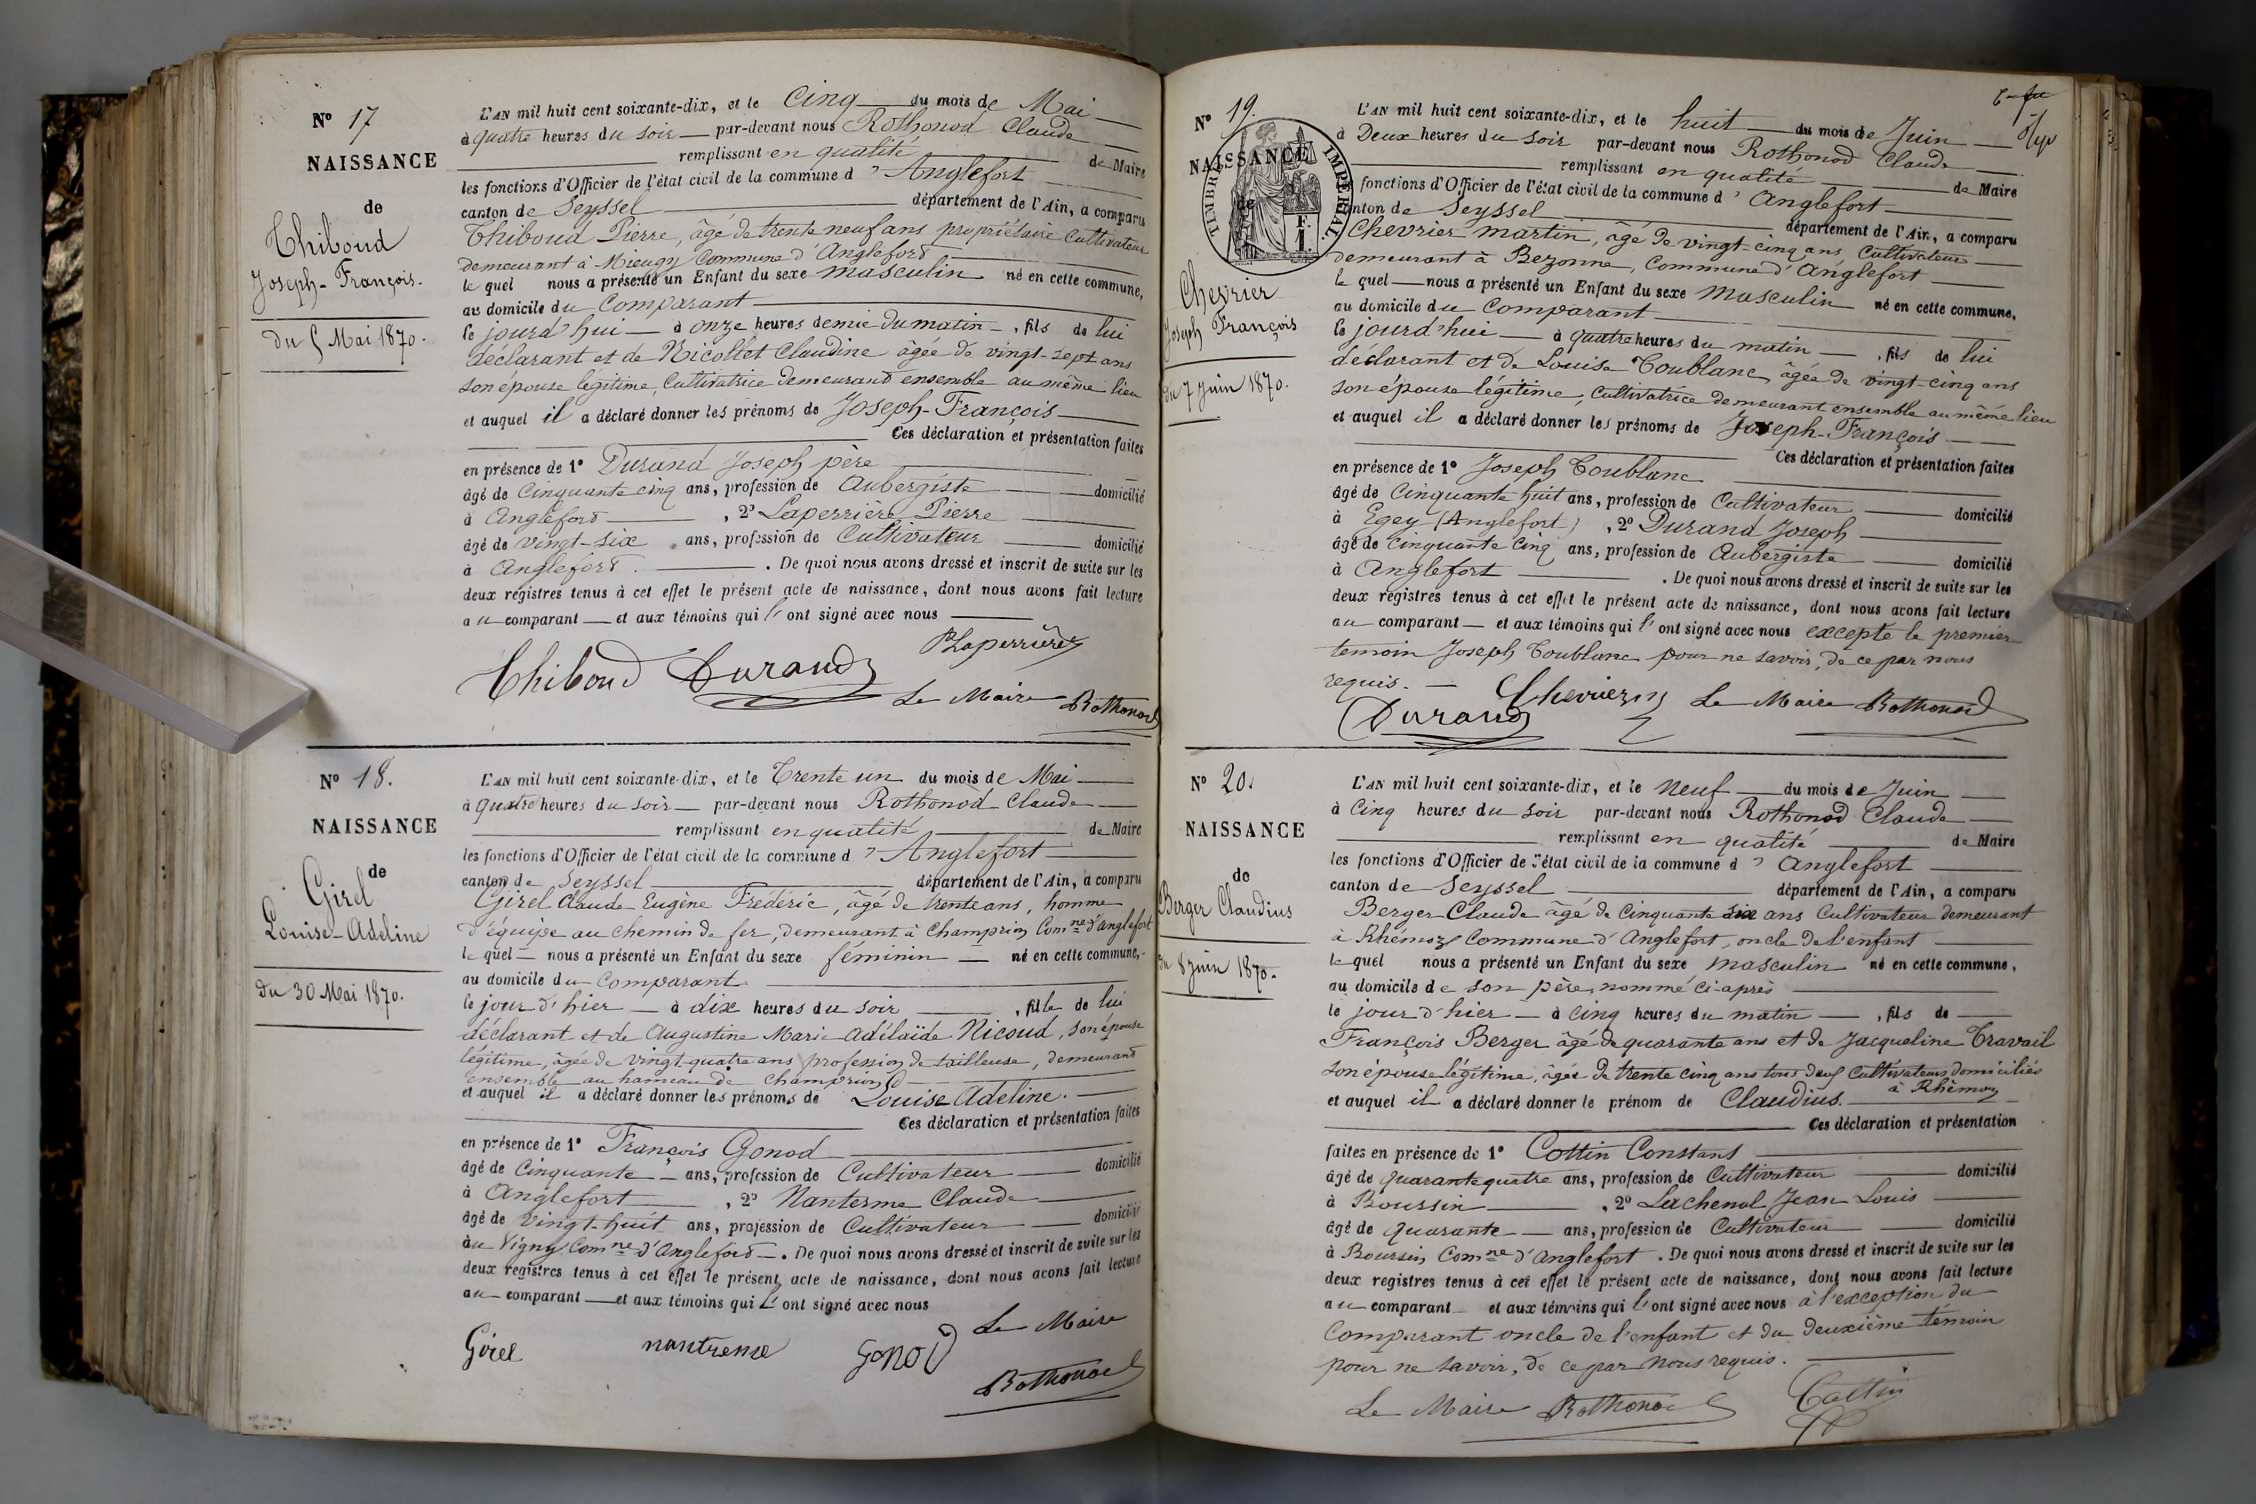 N° 17
NAISSANCE
de
Thiboud
Joseph-François.
du 5 Mai 1870.
L'AN mil huit cent soixante-dix, et le Cinq du mois de Mai
à quatre heures du soir par-devant nous Rothonod Claude
remplissant en qualité de Maire
les fonctions d'Officier de l'état civil de la commune d'Anglefort
canton de Seyssel département de l'Ain, a comparu
Thiboud Pierre, âgé de trente neuf ans propriétaire Cultivateur
demeurant à Mieugy Commune d'Anglefort
le quel nous a présenté un Enfant du sexe masculin né en cette commune,
au domicile du Comparant
le jourd'hui à onze heures demie du matin, fils de lui
déclarant et de Nicollet Claudine âgée de vingt-sept ans
son épouse légitime, Cultivatrice demeurant ensemble au même lieu
et auquel il a déclaré donner les prénoms de Joseph-François
Ces déclaration et présentation faites
en présence de 1° Durand Joseph père
âgé de Cinquante cinq ans, profession de Aubergiste domicilié
à Anglefort, 2° Laperrière Pierre
âgé de vingt-six ans, profession de Cultivateur domicilié
à Anglefort. De quoi nous avons dressé et inscrit de suite sur les
deux registres tenus à cet effet le présent acte de naissance, dont nous avons fait lecture
au comparant et aux témoins qui l'ont signé avec nous
PLaperrière
Thiboud Durand
Le Maire Rothonod
N° 18.
NAISSANCE
de
Girel
Louise-Adeline
du 30 Mai 1870.
L'AN mil huit cent soixante-dix, et le Trente un du mois de Mai
à quatre heures du soir par-devant nous Rothonod Claude
remplissant en qualité de Maire
les fonctions d'Officier de l'état civil de la commune d'Anglefort
canton de Seyssel département de l'Ain, a comparu
Girel Claude Eugène Frédéric, âgé de trente ans, homme
d'équipe au chemin de fer, demeurant à Champrion Comne d'Anglefort
le quel nous a présenté un Enfant du sexe féminin né en cette commune,
au domicile du Comparant
le jour d'hier à dix heures du soir, fille de lui
déclarant et de Augustine Marie Adélaïde Nicoud, son épouse
légitime, âgée de vingt-quatre ans profession de tailleuse, demeurant
ensemble au hameau de Champrion
et auquel il a déclaré donner les prénoms de Louise Adeline.
Ces déclaration et présentation faites
en présence de 1° François Gonod
âgé de Cinquante ans, profession de Cultivateur domicilié
à Anglefort, 2° Nanterme Claude
âgé de vingt-huit ans, profession de Cultivateur domicilié
au Vigny Comne d'Anglefort. De quoi nous avons dressé et inscrit de suite sur les
deux registres tenus à cet effet le présent acte de naissance, dont nous avons fait lecture
au comparant et aux témoins qui l'ont signé avec nous
Le Maire
Girel nantreme Gonod
Rothonod
N° 19.
NAISSANCE
de
TIMBRE IMPÉRIAL
Chevrier
Joseph François
du 7 Juin 1870.
L'AN mil huit cent soixante-dix, et le huit du mois de Juin
à Deux heures du soir par-devant nous Rothonod Claude
remplissant en qualité de Maire
fonctions d'Officier de l'état civil de la commune d'Anglefort
canton de Seyssel département de l'Ain, a comparu
Chevrier Martin, âgé de vingt-cinq ans, Cultivateur
demeurant à Bezonne, Commune d'Anglefort
le quel nous a présenté un Enfant du sexe masculin né en cette commune,
au domicile du Comparant
le jourd'hui à quatre heures du matin, fils de lui
déclarant et de Louise Toublanc âgée de vingt-cinq ans
son épouse légitime, Cultivatrice demeurant ensemble au même lieu
et auquel il a déclaré donner les prénoms de Joseph-François
Ces déclaration et présentation faites
en présence de 1° Joseph Toublanc
âgé de Cinquante huit ans, profession de Cultivateur domicilié
à Egey (Anglefort), 2° Durand Joseph
âgé de cinquante cinq ans, profession de Aubergiste domicilié
à Anglefort. De quoi nous avons dressé et inscrit de suite sur les
deux registres tenus à cet effet le présent acte de naissance, dont nous avons fait lecture
au comparant et aux témoins qui l'ont signé avec nous excepté le premier
temoin Joseph Toublanc pour ne savoir, de ce par nous
requis.
Chevrier m Le Maire Rothonod
Durand
N° 20.
NAISSANCE
de
Berger Claudius
du 8 juin 1870.
L'AN mil huit cent soixante-dix, et le Neuf du mois de Juin
à Cinq heures du soir par-devant nous Rothonod Claude
remplissant en qualité de Maire
les fonctions d'Officier de l'état civil de la commune d'Anglefort
canton de Seyssel département de l'Ain, a comparu
Berger Claude âgé de Cinquante six ans Cultivateur demeurant
à Rhémoz Commune d'Anglefort, oncle de l'enfant
le quel nous a présenté un Enfant du sexe masculin né en cette commune,
au domicile de son père, nommé ci-après
le jour d'hier à cinq heures du matin, fils de
François Berger âgé de quarante ans et de Jacqueline Travail
son épouse légitime, âgée de trente cinq ans tous deux Cultivateurs domiciliés
à Rhémoz
et auquel il a déclaré donner le prénom de Claudius.
Ces déclaration et présentation
faites en présence de 1° Cottin Constant
âgé de quarante quatre ans, profession de Cultivateur domicilié
à Boursin, 2° Lachenal Jean Louis
âgé de quarante ans, profession de Cultivateur domicilié
à Boursin Comne d'Anglefort. De quoi nous avons dressé et inscrit de suite sur les
deux registres tenus à cet effet le présent acte de naissance, dont nous avons fait lecture
au comparant et aux témoins qui l'ont signé avec nous à l'exception du
Comparant oncle de l'enfant et du deuxième témoin
pour ne savoir, de ce par nous requis.
Le Maire Rothonod Cottin